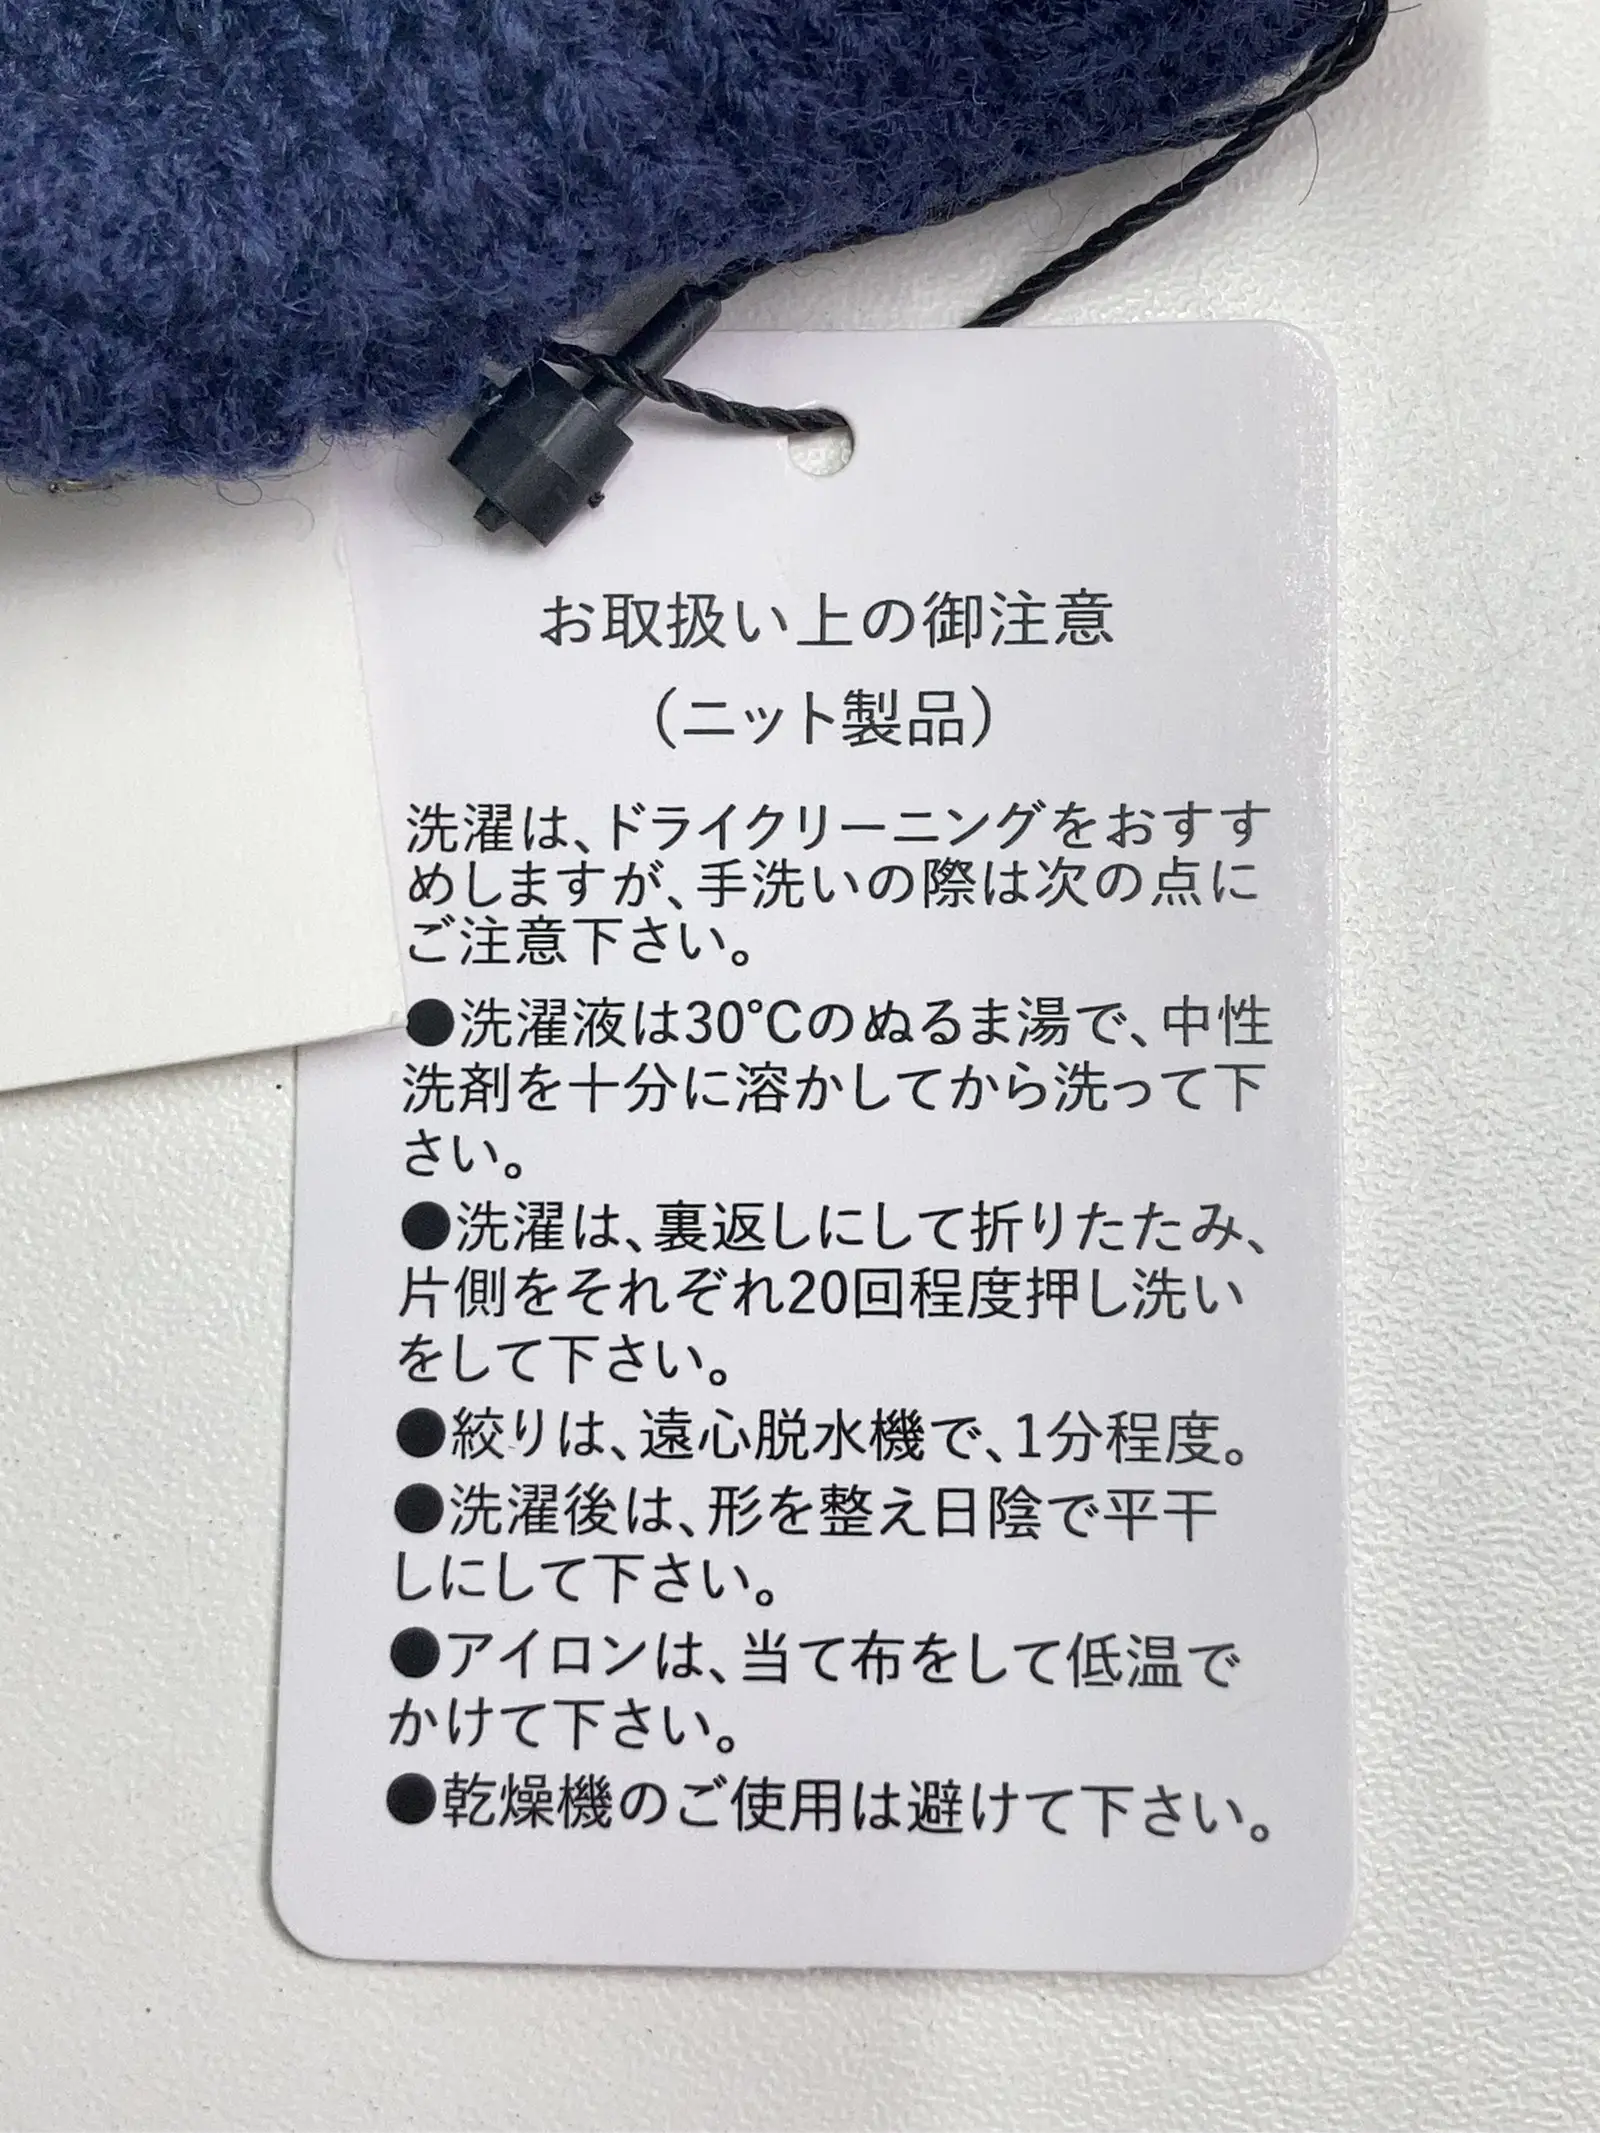 お取扱い上の御注意
（ニット製品）
洗濯は、ドライクリーニングをおすす
めしますが、手洗いの際は次の点に
ご注意下さい。
●洗濯液は30℃のぬるま湯で、中性
洗剤を十分に溶かしてから洗って下
さい。
●洗濯は、裏返しにして折りたたみ、
片側をそれぞれ20回程度押し洗い
をして下さい。
●絞りは、遠心脱水機で、1分程度。
●洗濯後は、形を整え日陰で平干
しにして下さい。
●アイロンは、当て布をして低温で
かけて下さい。
●乾燥機のご使用は避けて下さい。